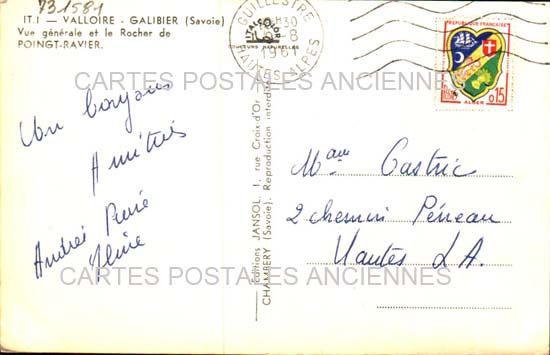 731581
IT.1 — VALLOIRE - GALIBIER (Savoie)
Vue générale et le Rocher de
POINGT-RAVIER.
GUILLESTRE
8
1961
HAUTES-ALPES
ITALCOLOR
COULEURS NATURELLES
REPUBLIQUE FRANÇAISE
0,15
ALGER
CARTES POSTALES ANCIENNES
Amitiés
André
Editions JANSOL, 1, rue Croix-d'Or
CHAMBERY (Savoie). Reproduction interdite
Mme Castric
2 chemin Péneau
Nantes L.A.
CARTES POSTALES ANCIENNES